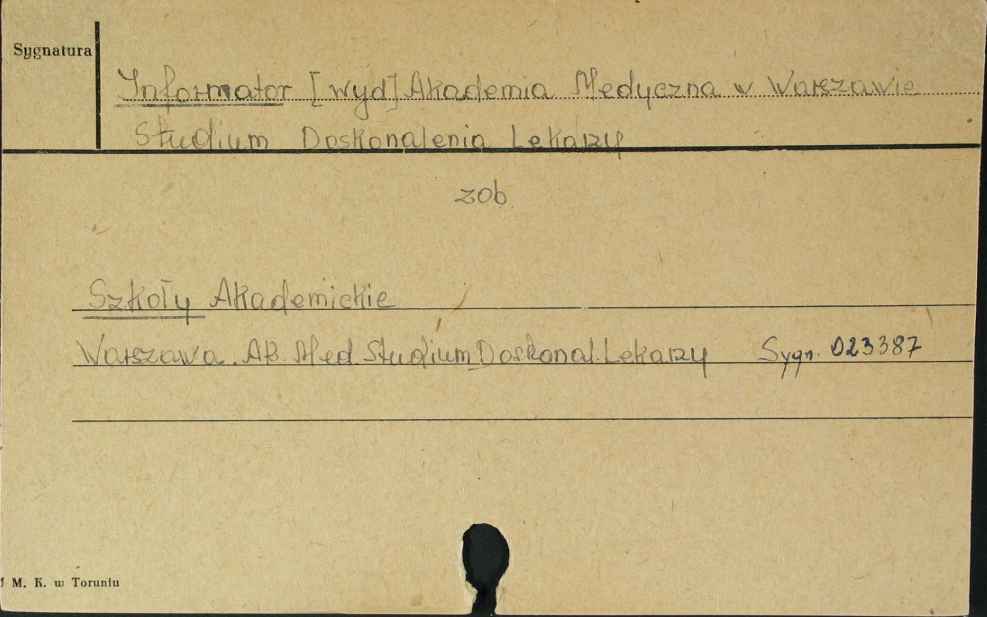 Sygnatura
Informator [wyd] Akademia Medyczna w Warszawie
Studium Doskonalenia Lekarzy
zob
Szkoły Akademickie
Warszawa. Ak. Med. Studium Doskonal. Lekarzy Sygn. 023387
M. K. w Toruniu